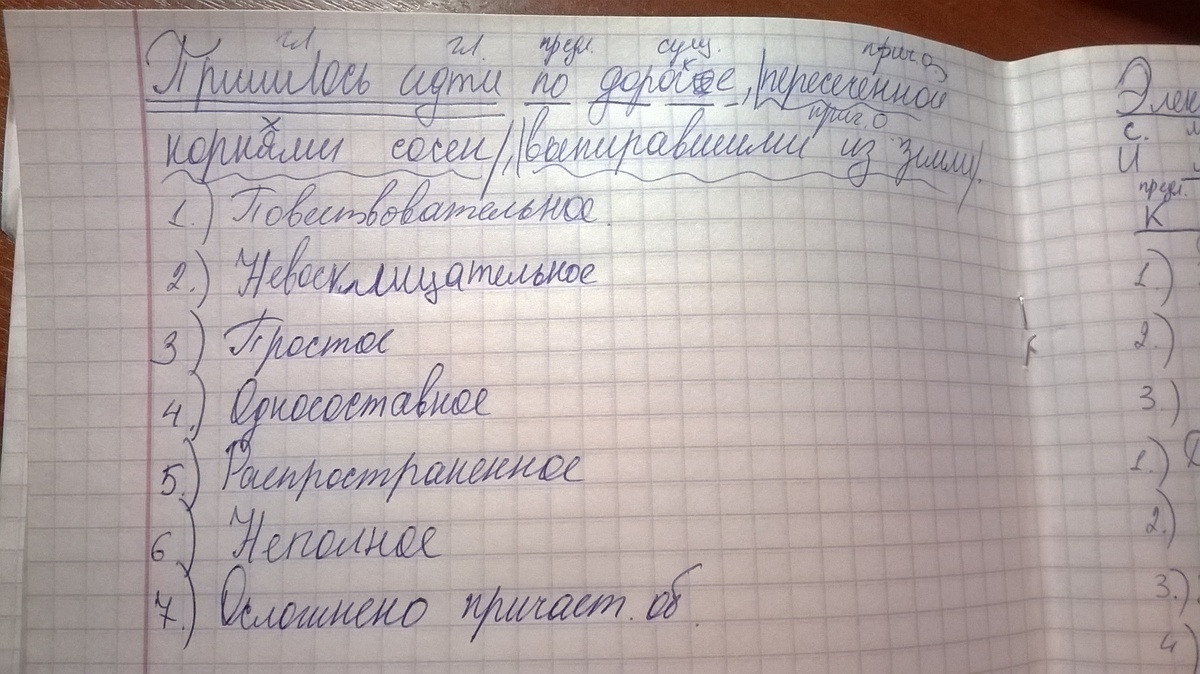 гл. гл. предл. сущ. прич.о
Пришлось идти по дорожке, пересеченной
прич.о
корнями сосен, выпиравшими из земли.
1.) Повествовательное
2.) Невосклицательное
3) Простое
4.) Односоставное
5.) Распространенное
6) Неполное
7.) Осложнено причаст. об.
Элек
с.
и
предл.
К
1.)
2.)
3.)
1.)
2.)
3.)
4)